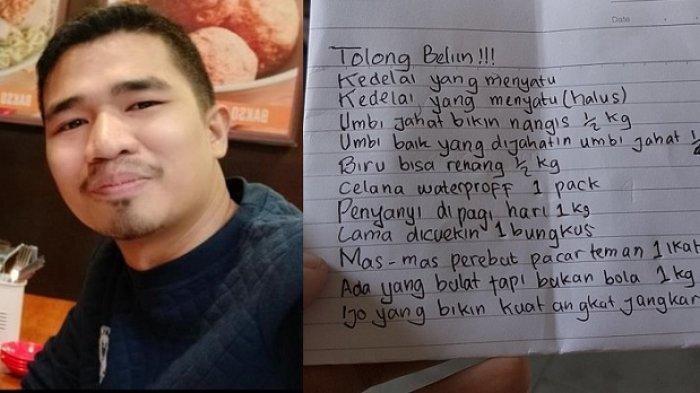 BAKSO
BAKSO
Date
Tolong Beliin!!!
Kedelai yang menyatu
Kedelai yang menyatu (halus)
Umbi jahat bikin nangis 1/2 kg
Umbi baik yang dijahatin umbi jahat
Biru bisa renang 1/2 kg
Celana waterproff 1 pack
Penyanyi di pagi hari 1 kg
Lama dicuekin 1 bungkus
Mas-mas perebut pacar teman 1 ikat
Ada yang bulat tapi bukan bola 1 kg
Ijo yang bikin kuat angkat jangkar